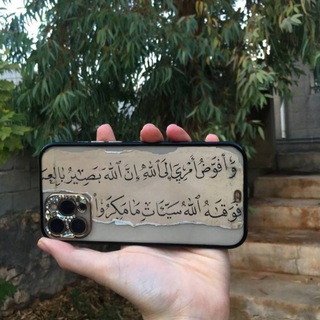 وَأُفَوِّضُ أَمْرِي إِلَى ٱللَّهِ إِنَّ ٱللَّهَ بَصِيرٌ بِالعِبَـ
فَوَقَـٰهُ ٱللَّهُ سَيِّـَٔاتِ مَا مَكَرُوا۟